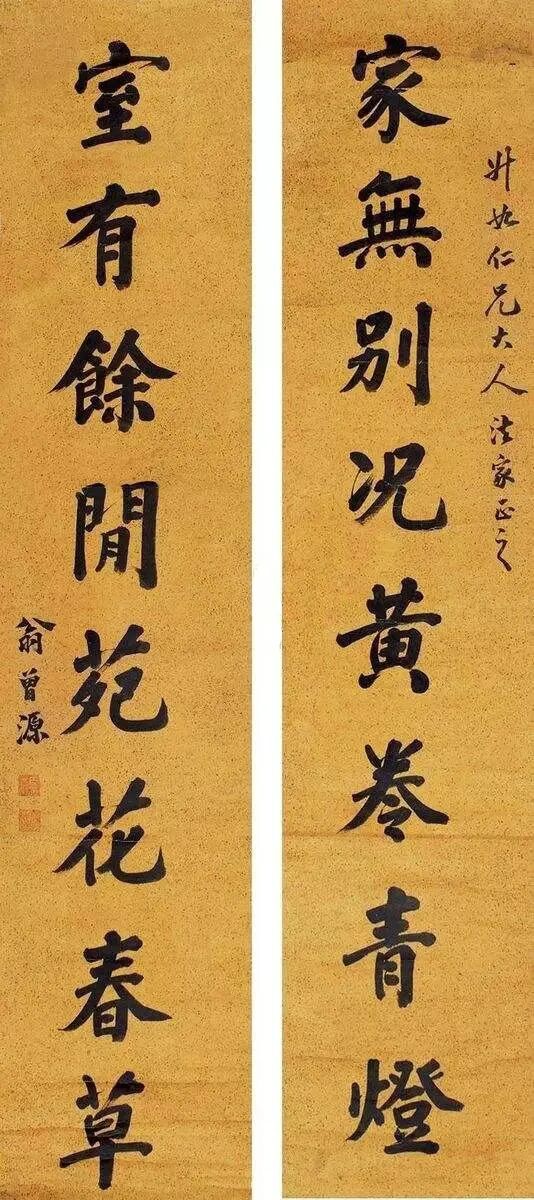 升如仁兄大人法家正之
家無別況黃卷青燈
室有餘閒苑花春草
翁曾源